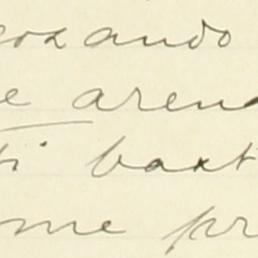 gozando
e arena
ti baxt
me pr